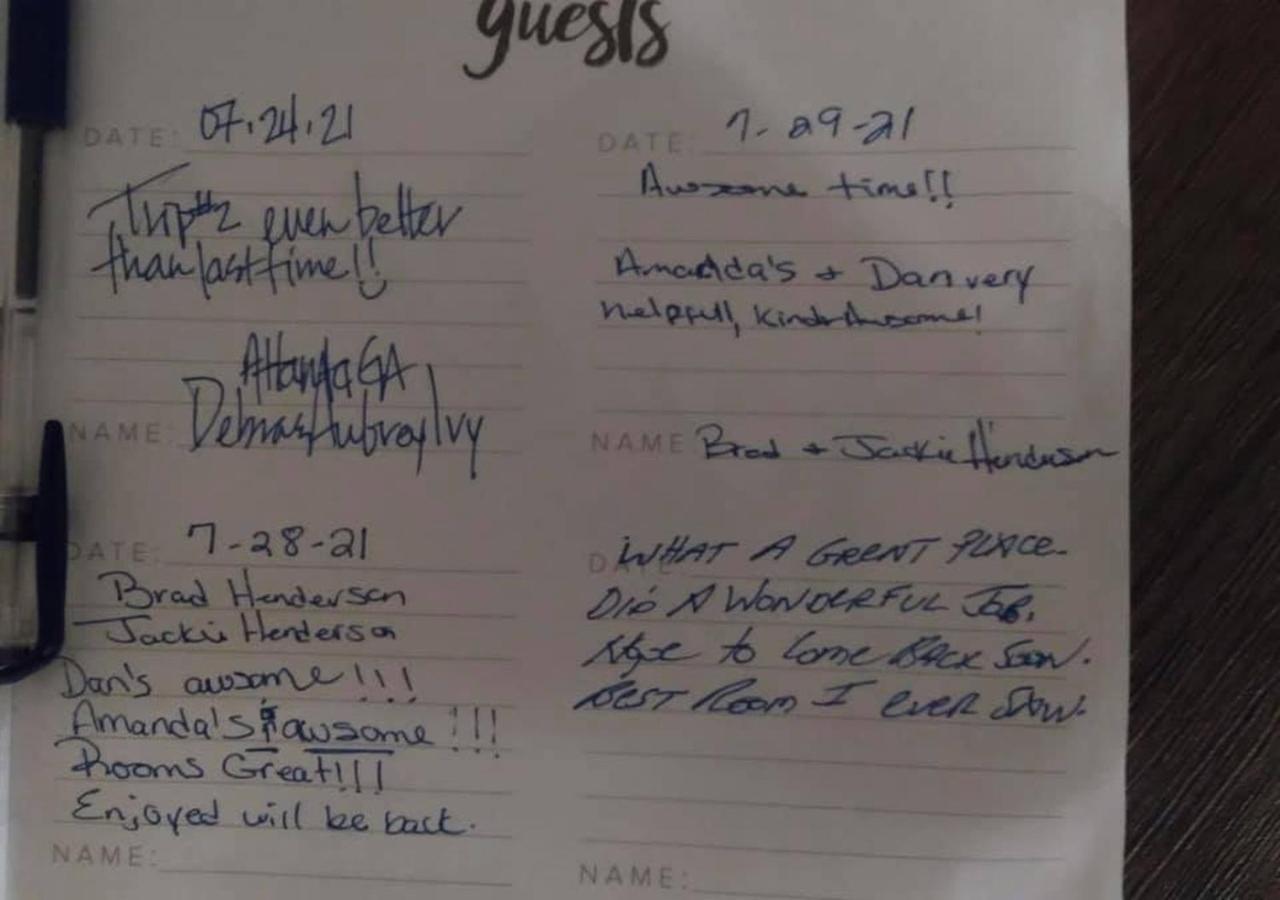 guests
DATE: 07.24.21
Trip #2 even better
than last time!!
Atlanta GA
NAME: Debra & Aubrey Ivy
DATE: 7-28-21
Brad Henderson
Jackie Henderson
Dan's awsome!!!
Amanda's awsome!!!
Rooms Great!!!
Enjoyed will be back.
NAME:
DATE: 7-29-21
Awsome time!!
Amadda's + Dan very
helpfull, kind + Awsome!
NAME Brad + Jackie Henderson
WHAT A GREAT PLACE.
DID A WONDERFUL JOB.
Hope to Come BACK Soon.
BEST Room I ever Saw.
NAME: